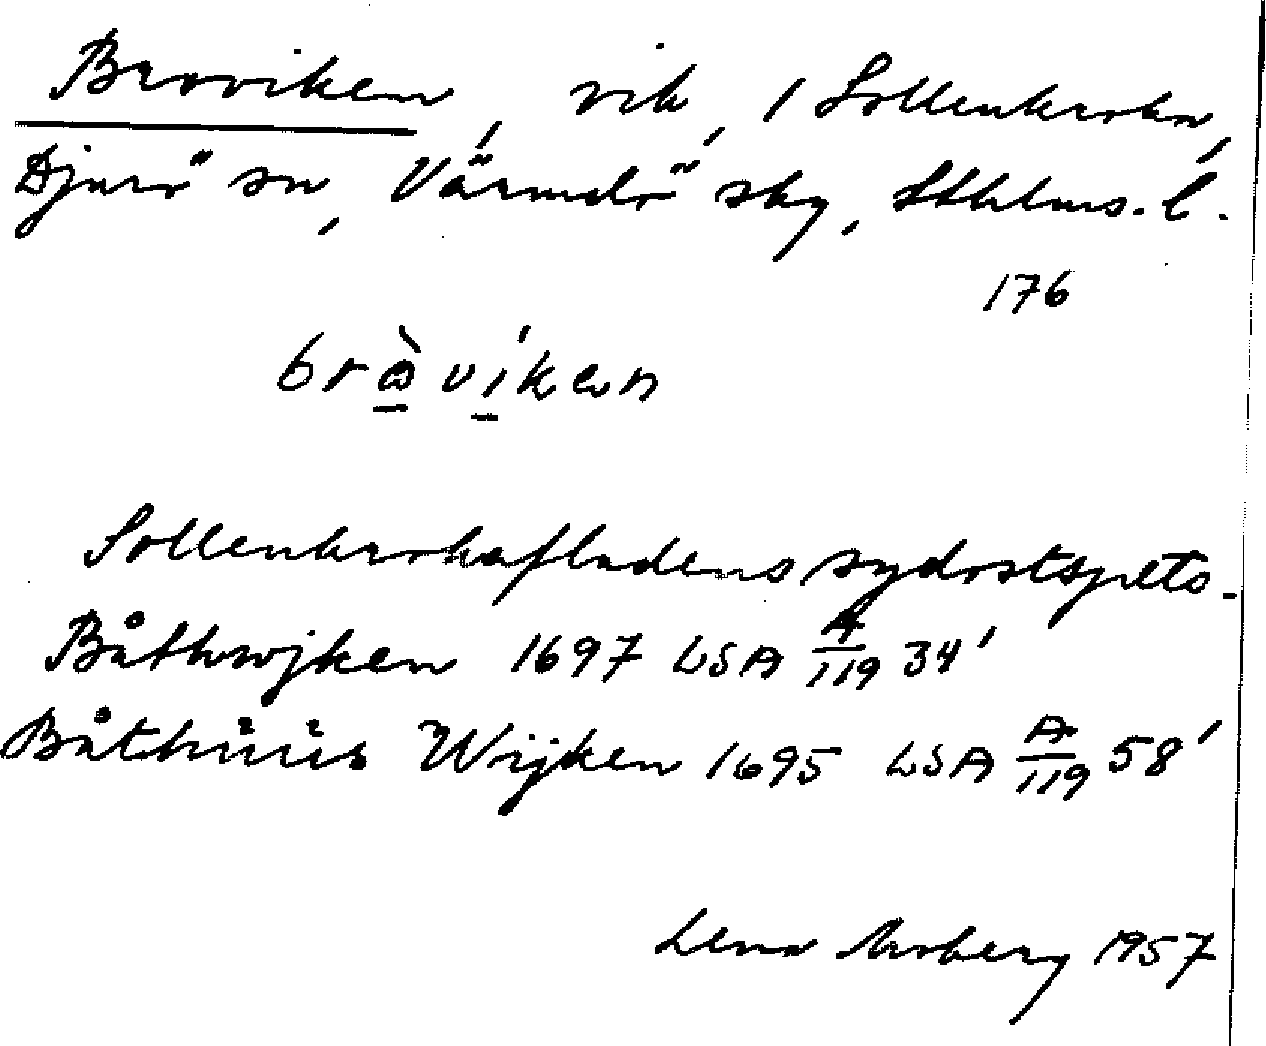 Broviken, vik, 1 Sollenkroka,
Djurö sn, Värmdö skg, Sthlms. l.
176
bròviken
Sollenkrokafladens sydostspets.
Båthwjken 1697 LSA A/119 34'
Båthüüs Wijken 1695 LSA A/119 58'
Lena Moberg 1957